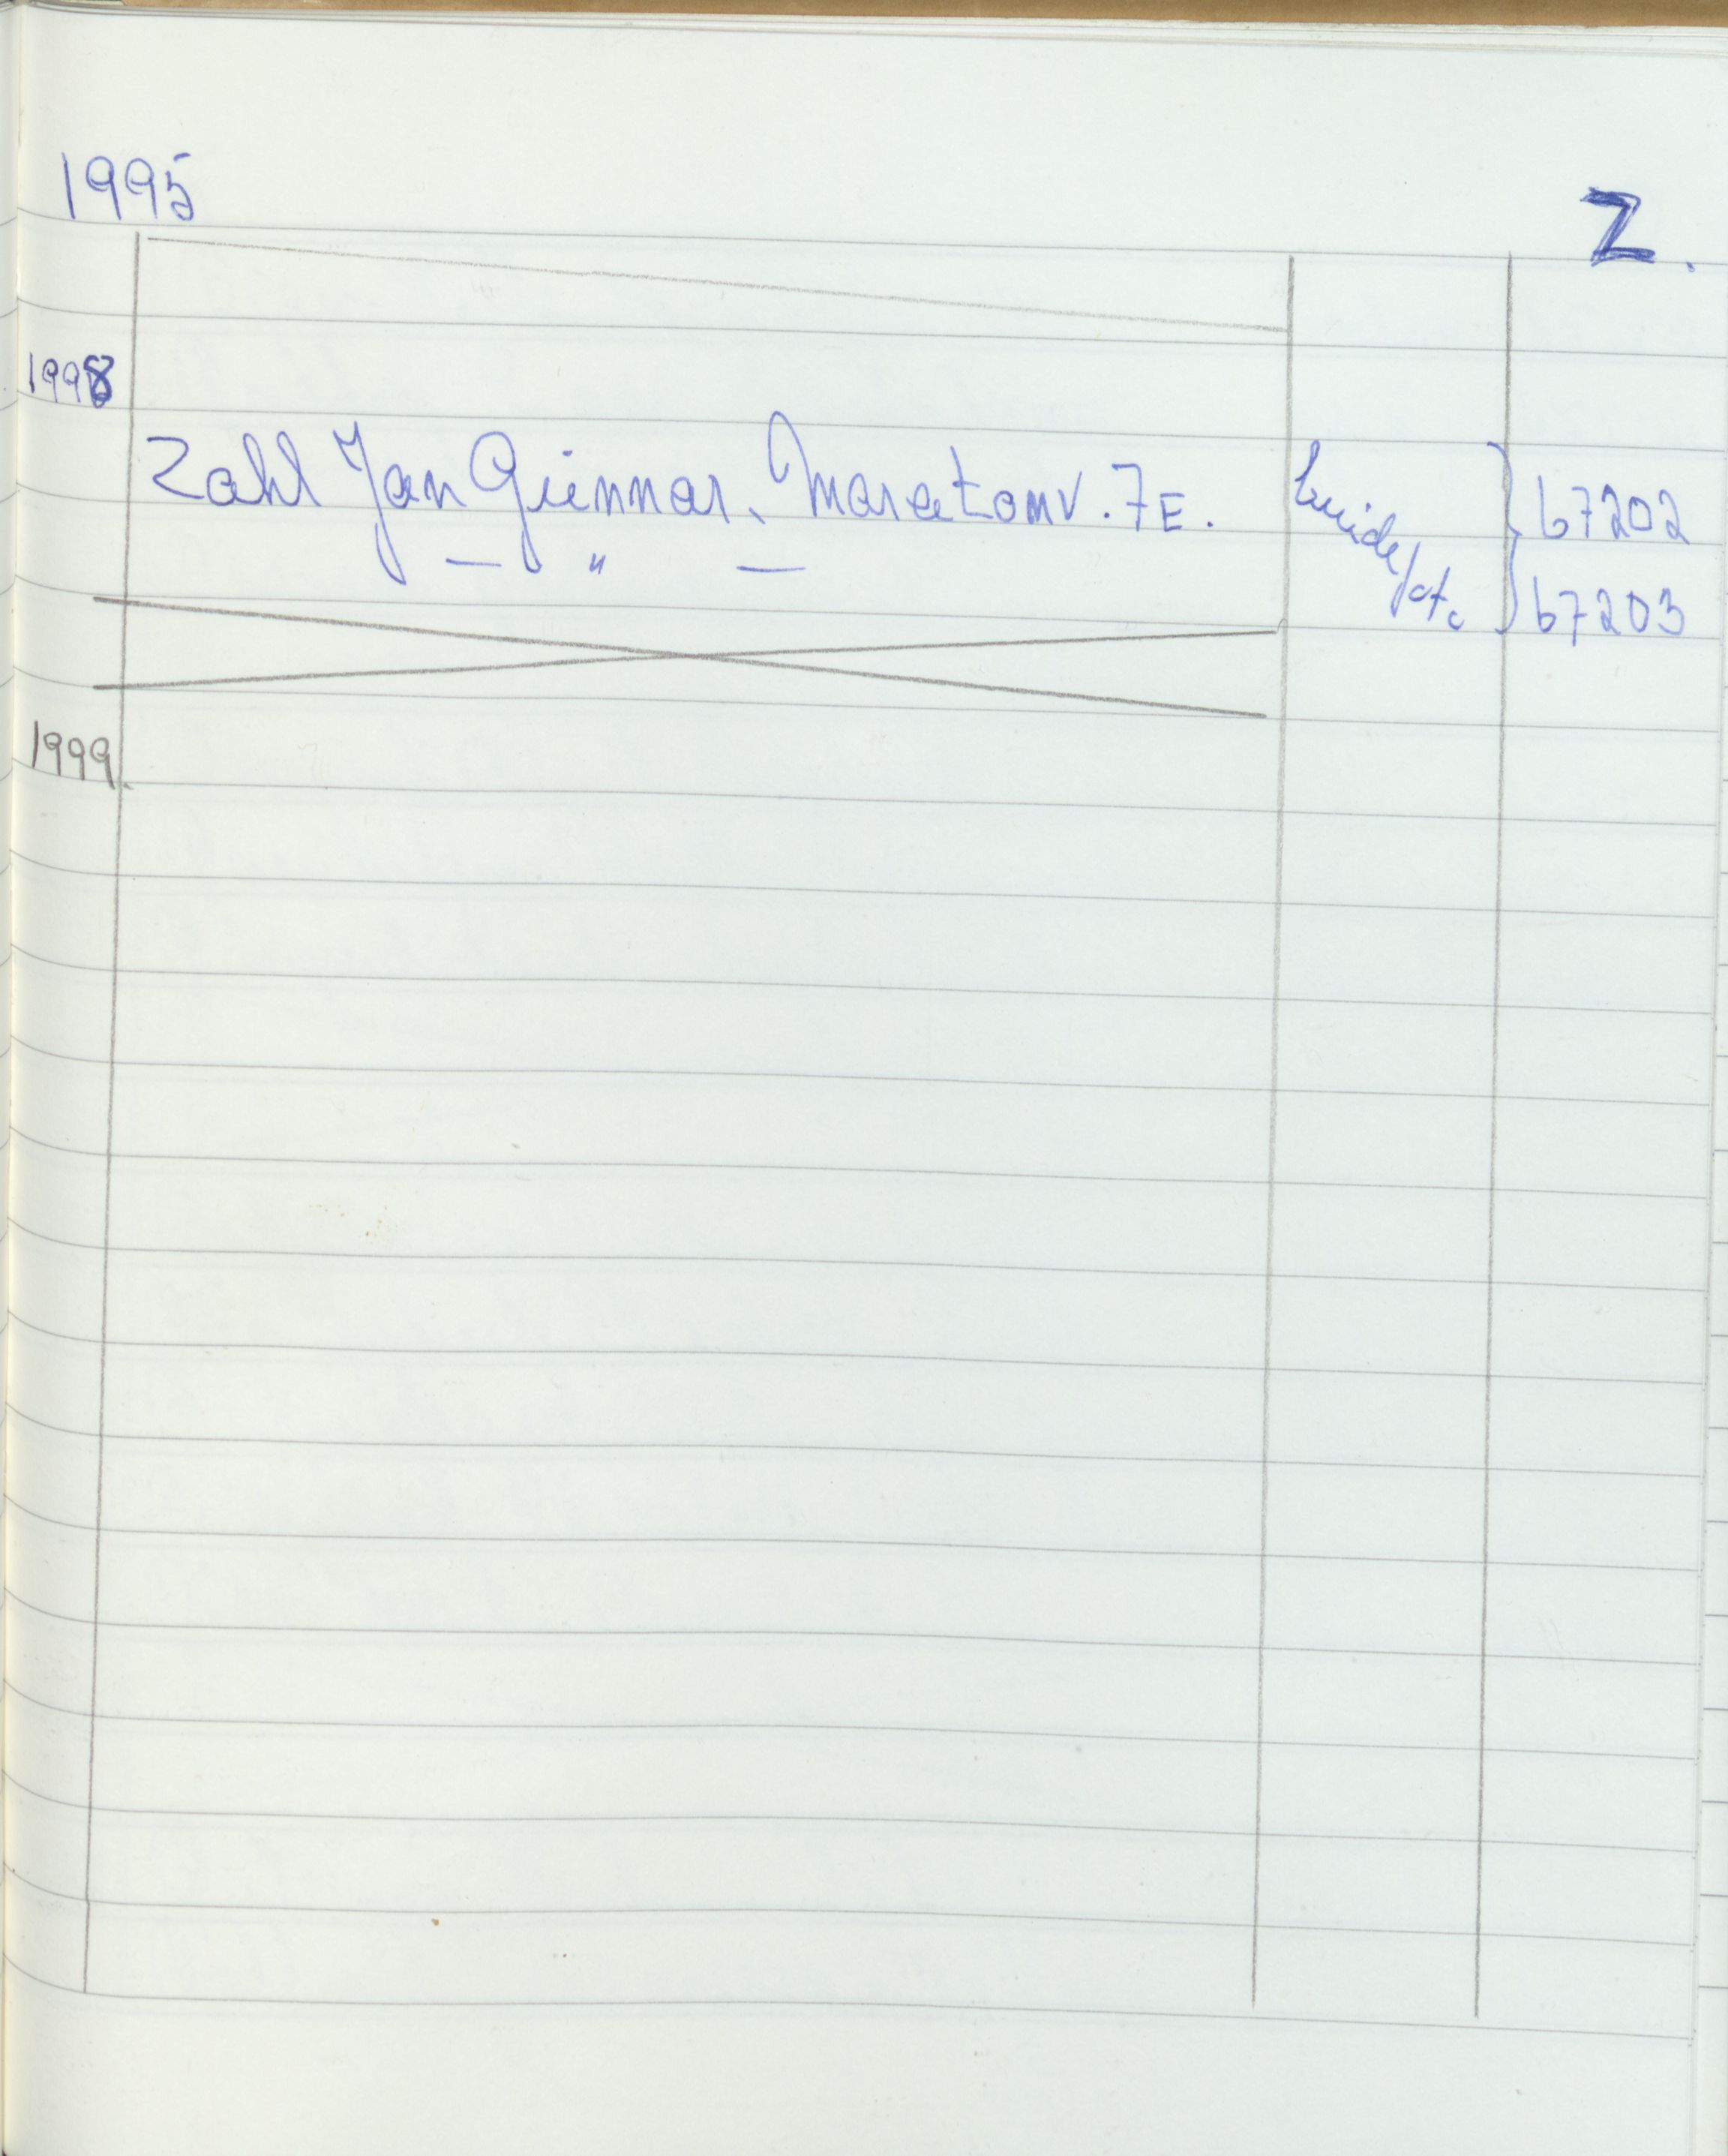 1995
Z.
1998
Zahl Jan Gunnar, Maratonv. 7E. 67202
— " — 67203
1999.